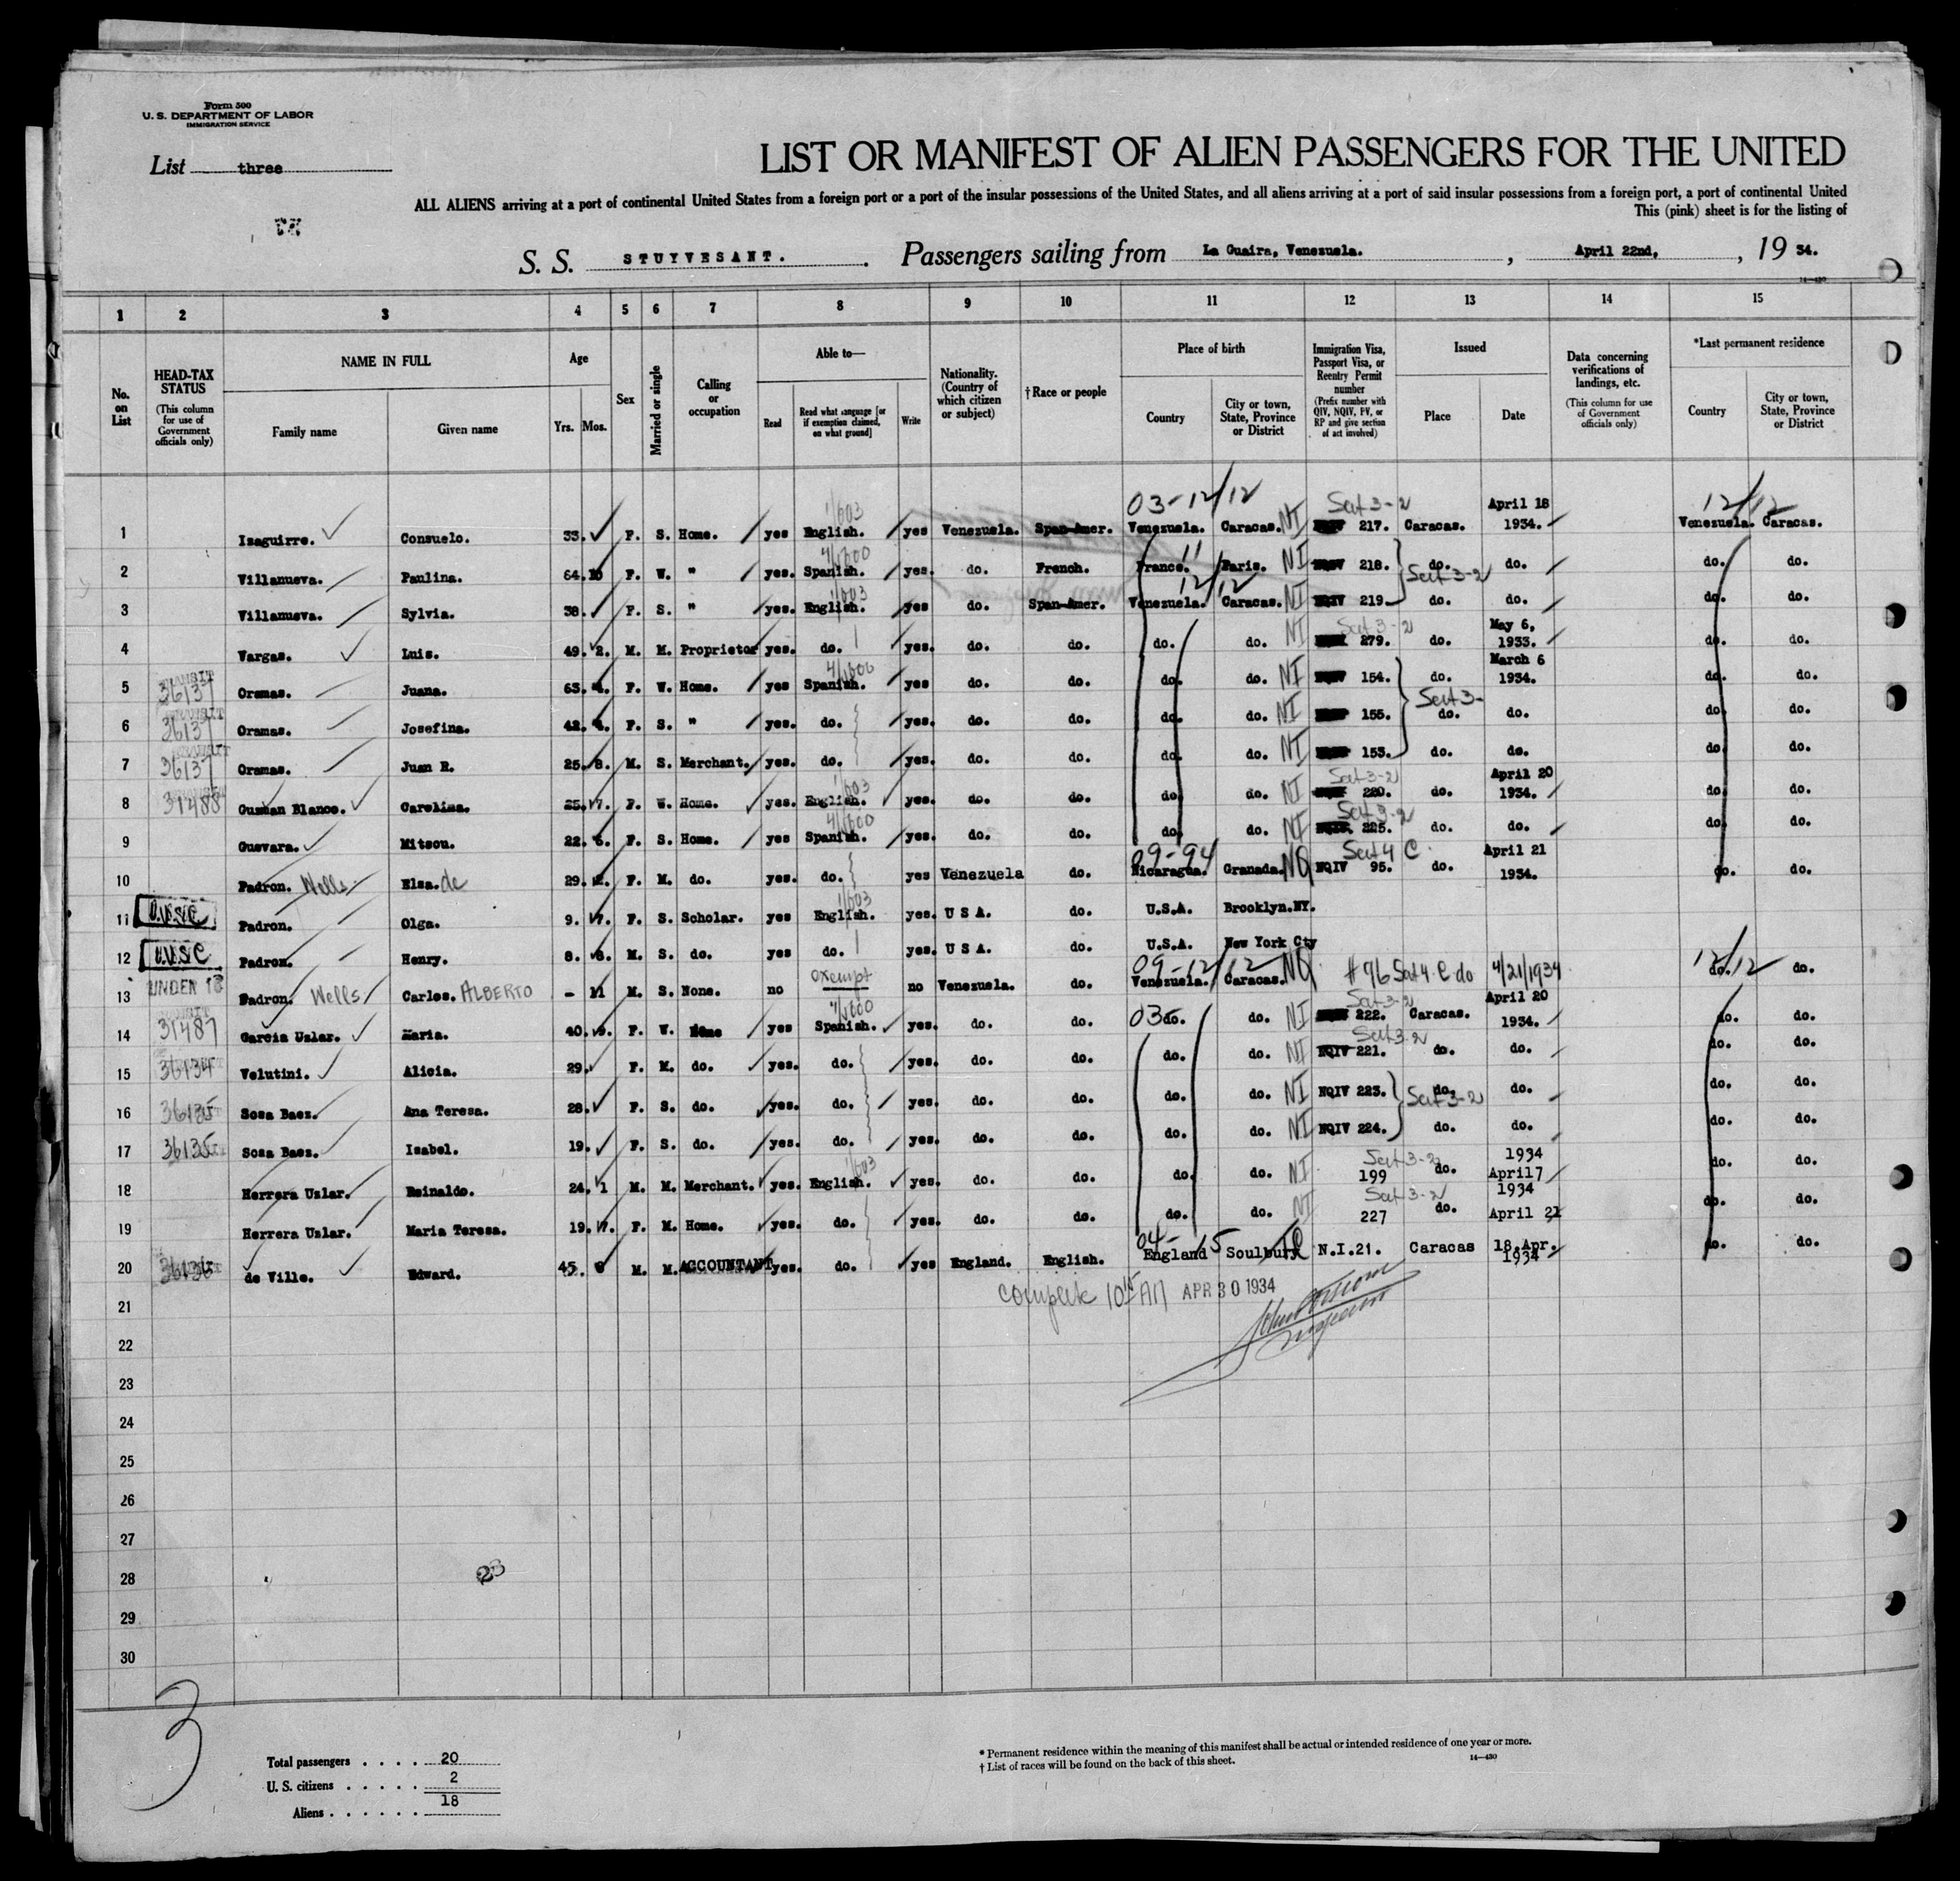 Form 500
U. S. DEPARTMENT OF LABOR
IMMIGRATION SERVICE
List three
LIST OR MANIFEST OF ALIEN PASSENGERS FOR THE UNITED
ALL ALIENS arriving at a port of continental United States from a foreign port or a port of the insular possessions of the United States, and all aliens arriving at a port of said insular possessions from a foreign port, a port of continental United
This (pink) sheet is for the listing of
S. S. STUYVESANT. Passengers sailing from La Guaira, Venezuela. , April 22nd, , 19 34.
14—430
1 2 3 4 5 6 7 8 9 10 11 12 13 14 15
No. on List
HEAD-TAX STATUS
(This column for use of Government officials only)
NAME IN FULL
Family name Given name
Age
Yrs. Mos.
Sex
Married or single
Calling or occupation
Able to—
Read
Read what language [or if exemption claimed, on what ground]
Write
Nationality. (Country of which citizen or subject)
† Race or people
Place of birth
Country
City or town, State, Province or District
Immigration Visa, Passport Visa, or Reentry Permit number
(Prefix number with QIV, NQIV, PV, or RP and give section of act involved)
Issued
Place Date
Data concerning verifications of landings, etc.
(This column for use of Government officials only)
*Last permanent residence
Country
City or town, State, Province or District
03-12/12 Sect 3-2 April 18 12/12
1 Isaguirre. Consuelo. 33. F. S. Home. yes English. yes Venezuela. Span-Amer. Venezuela. Caracas. NI 217. Caracas. 1934. Venezuela. Caracas.
2 Villanueva. Paulina. 64. 10 F. W. " yes. Spanish. yes. do. French. France. Paris. NI 218. do. do. do. do.
Sect 3-2
3 Villanueva. Sylvia. 38. F. S. " yes. English. yes do. Span-Amer. Venezuela. Caracas. NI NQIV 219. do. do. do. do.
Sect 3-2 May 6,
4 Vargas. Luis. 49. 2. M. M. Proprietor yes. do. yes. do. do. do. do. NI 279. do. 1933. do. do.
March 6
5 36137 Oramas. Juana. 63. 4. F. W. Home. yes Spanish. yes do. do. do. do. NI 154. do. 1934. do. do.
Sect 3-
6 36137 Oramas. Josefina. 42. 4. F. S. " yes. do. yes. do. do. do. do. NI 155. do. do. do. do.
7 36137 Oramas. Juan R. 25. 8. M. S. Merchant. yes. do. yes. do. do. do. do. NI 153. do. do. do. do.
Sect 3-2 April 20
8 31488 Guzman Blanco. Carolina. 25. 7. F. W. Home. yes. English. yes. do. do. do. do. NI 220. do. 1934. do. do.
Sect 3-2
9 Guevara. Mitsou. 22. 6. F. S. Home. yes Spanish. yes. do. do. do. do. NI 225. do. do. do. do.
09-94 Sect 4 C April 21
10 Padron. Wells Elsa. de 29. 12. F. M. do. yes. do. yes Venezuela do. Nicaragua. Granada. NQ NQIV 95. do. 1934. do. do.
11 U.S.C Padron. Olga. 9. 7. F. S. Scholar. yes English. yes. U S A. do. U.S.A. Brooklyn.NY.
12 U.S.C Padron. Henry. 8. 8. M. S. do. yes do. yes. U S A. do. U.S.A. New York Cty
UNDER 18 exempt 09-12/12 12/12
13 Padron. Wells Carlos. ALBERTO - 11 M. S. None. no no Venezuela. do. Venezuela. Caracas. NQ #96 Sect 4 C do 4/21/1934 do. do.
Sect 3-2 April 20
14 31487 Garcia Uslar. Maria. 40. 9. F. W. Home yes Spanish. yes. do. do. 03 do. do. NI 222. Caracas. 1934. do. do.
Sect 3-2
15 36134 Velutini. Alicia. 29. F. M. do. yes. do. yes. do. do. do. do. NI NQIV 221. do. do. do. do.
16 36135 Sosa Baez. Ana Teresa. 28. F. S. do. yes. do. yes. do. do. do. do. NI NQIV 223. do. do. do. do.
Sect 3-2
17 36135 Sosa Baez. Isabel. 19. F. S. do. yes. do. yes. do. do. do. do. NI NQIV 224. do. do. do. do.
Sect 3-2 1934
18 Herrera Uslar. Reinaldo. 24. 1 M. M. Merchant. yes. English. yes. do. do. do. do. NI 199 do. April7 do. do.
Sect 3-2 1934
19 Herrera Uslar. Maria Teresa. 19. 7. F. M. Home. yes. do. yes. do. do. do. do. NI 227 do. April 21 do. do.
04-15
20 36136 de Ville. Edward. 45. 6 M. M. ACCOUNTANT yes. do. yes England. English. England Soulbury N.I.21. Caracas 18.Apr. 1934 do. do.
complete 10 15 AM APR 30 1934
21
22
23
24
25
26
27
28
29
30
23
3
Total passengers . . . . 20
U. S. citizens . . . . . 2
Aliens . . . . . . 18
* Permanent residence within the meaning of this manifest shall be actual or intended residence of one year or more.
† List of races will be found on the back of this sheet.
14—430